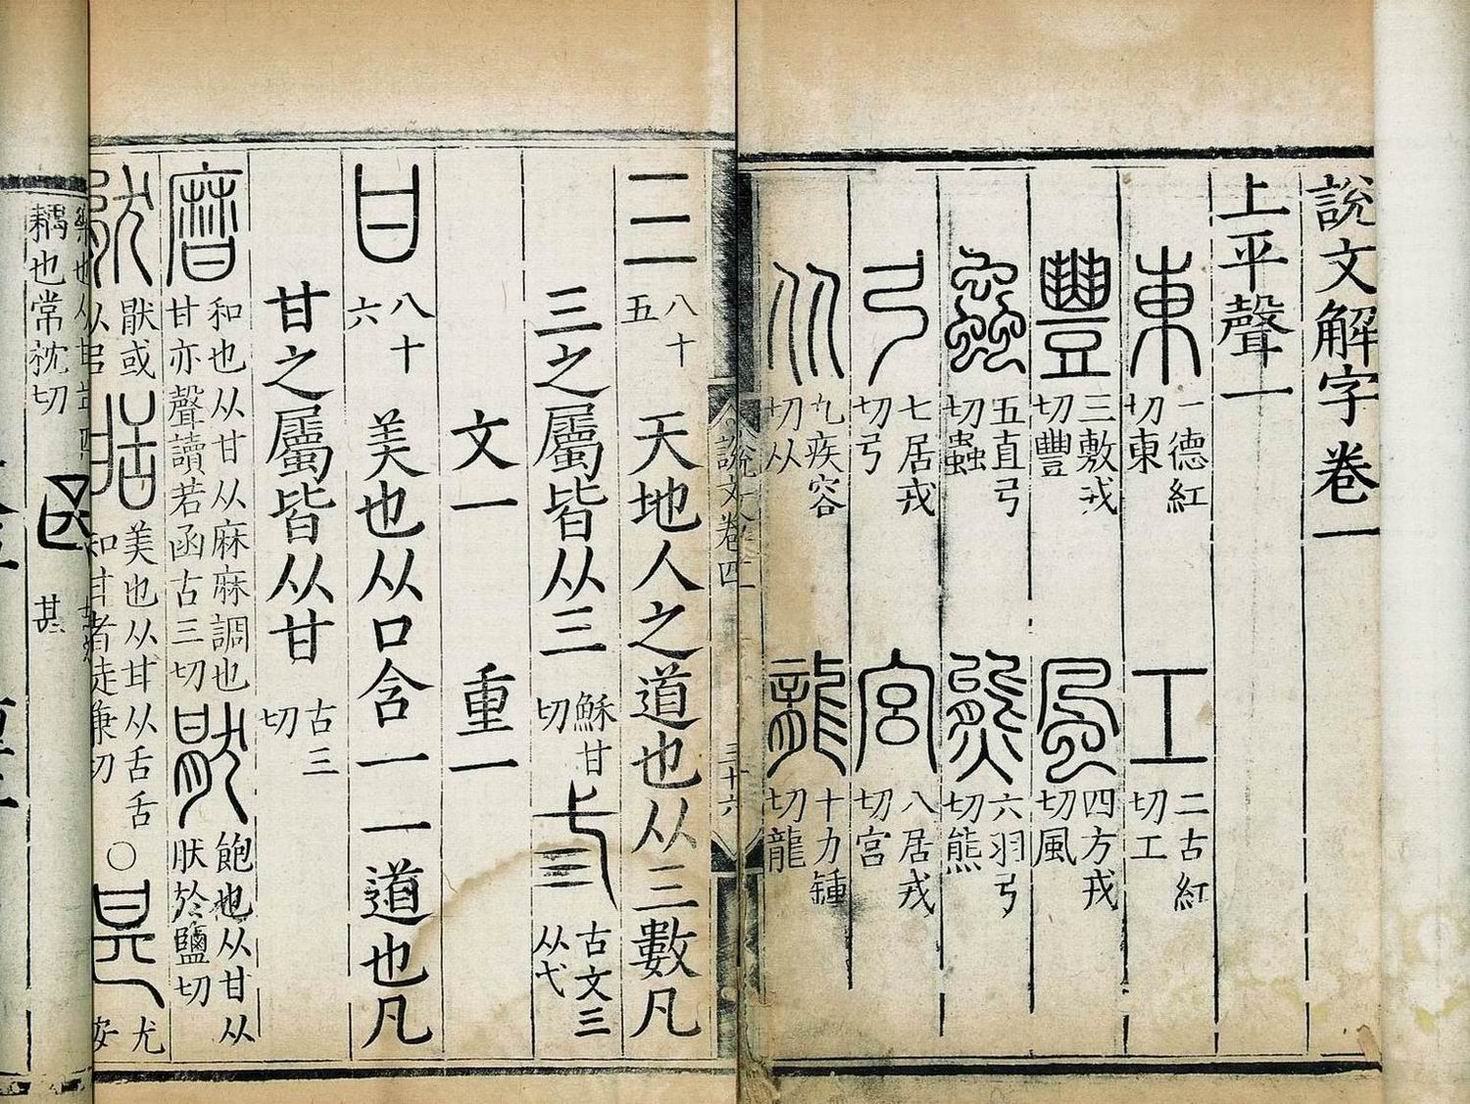 說文解字卷一
上平聲一
東 一德紅切東 工 二古紅切工
豐 三敷戎切豐 風 四方戎切風
蟲 五直弓切蟲 熊 六羽弓切熊
弓 七居戎切弓 宮 八居戎切宮
从 九疾容切从 龍 十力鍾切龍
說文卷四 三十六
三 八十五 天地人之道也从三數凡
三之屬皆从三 穌甘切 弎 古文三从弋
文一 重一
甘 八十六 美也从口含一一道也凡
甘之屬皆从甘 古三切
磿 和也从甘从麻麻調也甘亦聲讀若函古三切 猒 飽也从甘从肰於鹽切
猒或从㠯 甛 美也从甘从舌舌知甘者徒兼切 〇 甚 尤安
耦也常枕切 甚